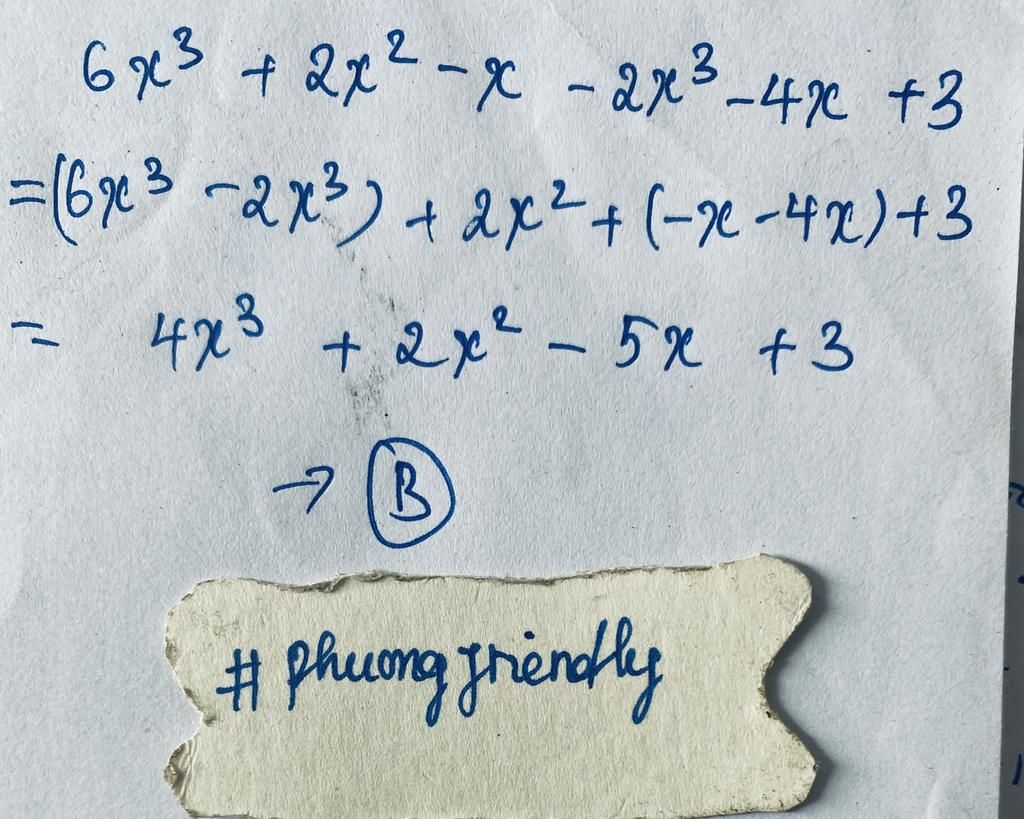 6x³ + 2x² - x - 2x³ - 4x + 3
= (6x³ - 2x³) + 2x² + (-x - 4x) + 3
= 4x³ + 2x² - 5x + 3
→ B
# phuongfriendly